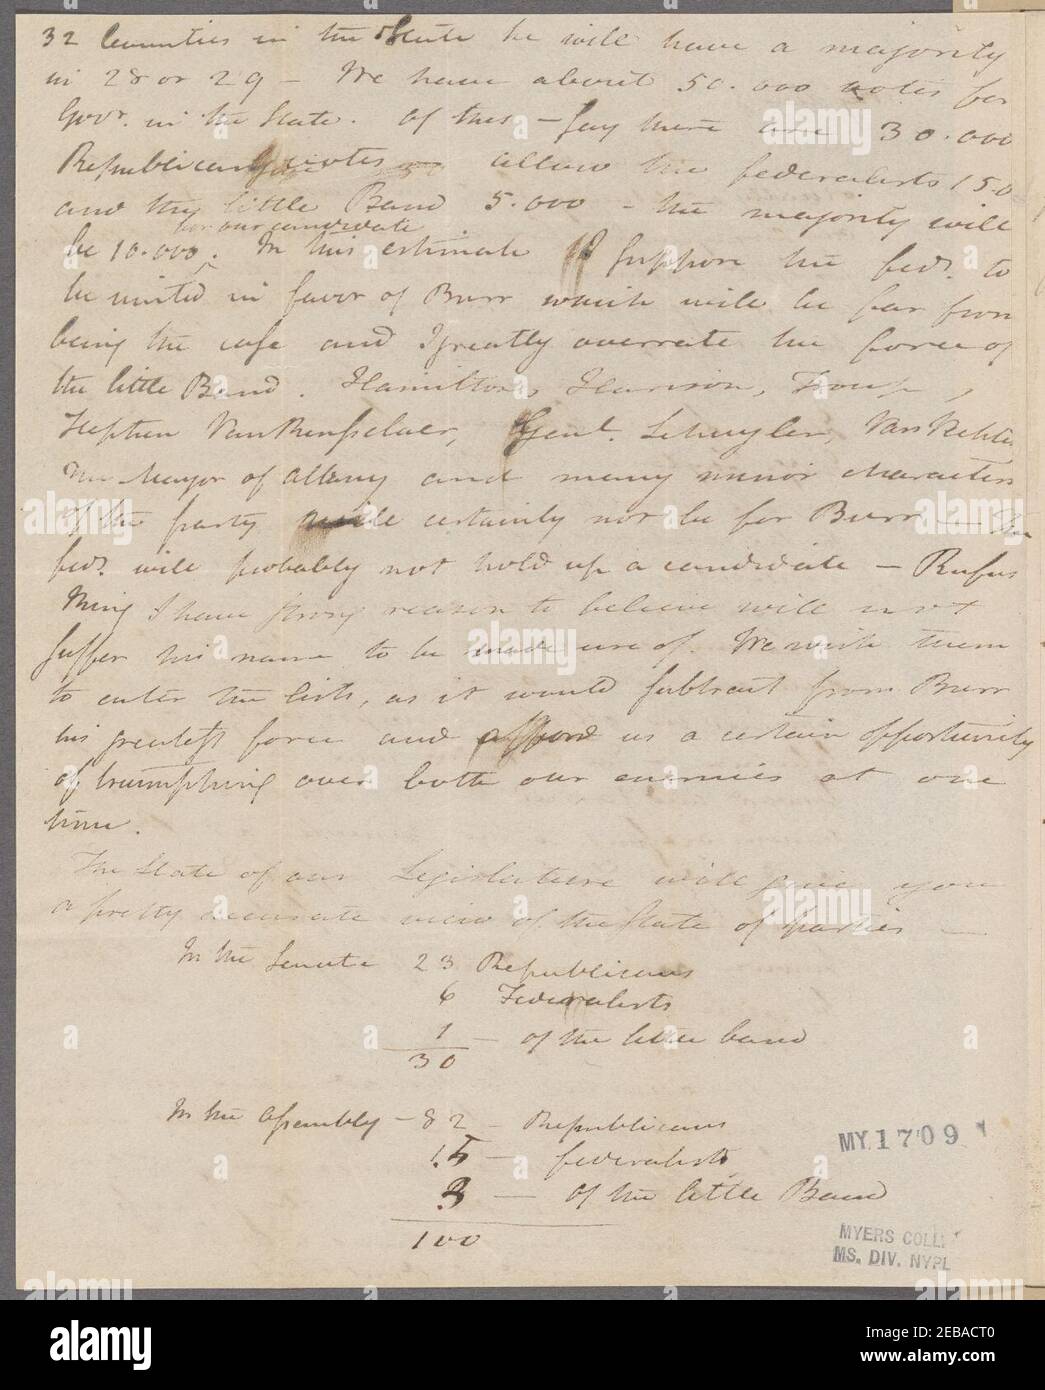 32 Counties in the State he will have a majority
in 28 or 29 – We have about 50.000 votes for
Govr. in the State. Of thes – say there are 30.000
Republican votes allow the federalists 150
and the little Band 5.000 – the majority will
for our candidate
be 10.000. In this estimate I suppose the feds. to
be united in favor of Burr which will be far from
being the case and I greatly overrate the force of
the little Band. Hamilton, Harrison, Troup,
Stephen Van Rensselaer, Genl. Schuyler, Van Vechten
The Mayor of Albany and many minor characters
of the party will certainly not be for Burr — The
feds. will probably not hold up a candidate — Rufus
King I have strong reason to believe will not
suffer his name to be made use of. We wish them
to enter the lists, as it would subtract from Burr
his greatest force and afford us a certain opportunity
of triumphing over both our enemies at one
time.
The State of our Legislature will give you
a pretty accurate view of the State of parties —
In the Senate 23 Republicans
6 Federalists
1 — of the little band
30
In the Assembly – 82 – Republicans
15 — federalists
3 — of the little Band
100
MY 1709
MYERS COLL
MS. DIV. NYPL
alamy
Image ID: 2EBACT0
www.alamy.com